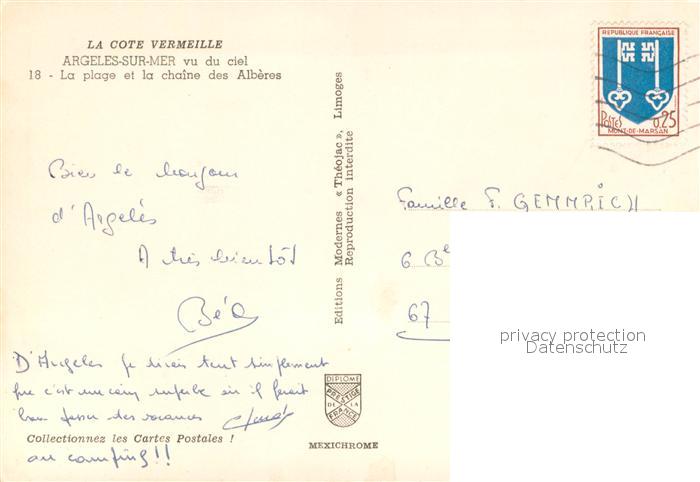 LA COTE VERMEILLE
ARGELES-SUR-MER vu du ciel
18 - La plage et la chaîne des Albères
Bien le bonjour
d'Argelès
A très bientôt
D'Argeles je dirais tout simplement
que c'est un coin superbe où il ferait
bon passer des vacances
Collectionnez les Cartes Postales !
au camping!!
Editions Modernes « Théojac », Limoges
Reproduction interdite
DIPLOME
PRESTIGE
DE LA
FRANCE
MEXICHROME
REPUBLIQUE FRANÇAISE
Postes 0,25
MONT-DE-MARSAN
Famille F.
6 Bd
67
privacy protection
Datenschutz